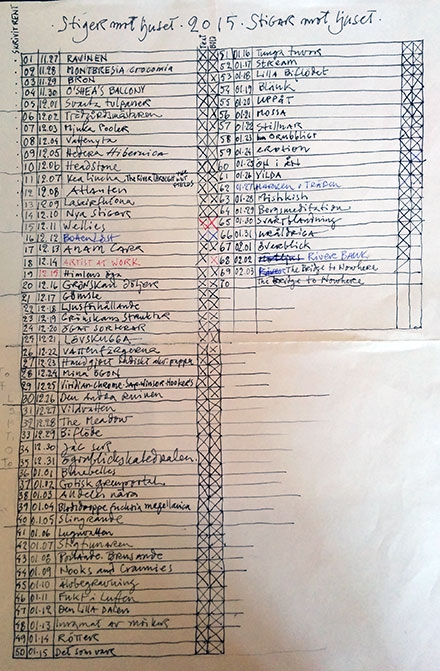 Stiger mot ljuset. 2015. Stigar mot ljuset.
Text
BILD
01 11.27 RAVINEN
02 11.28 MONTBRESIA crocosmia
03 11.29 BRON
04 11.30 O'SHEA'S BALCONY
05 12.01 Svarta tulpaner
06 12.02
07 12.03 Mjuka Pooler
08 12.04 Vattenyta
09 12.05 Hedera Hibernica
10 12.06 Headstone
11 12.07 Kealincha, The River through
12 12.08 Atlanten
13 12.09
14 12.10 Nya stigar
15 12.11 Wellies
16 12.12 Boten Lost
17 12.13 ANAM CARA
18 12.14 ARTIST AT WORK
19 12.15 Himlens öga
20 12.16 Grönskan följer
21 12.17 Gömsle
22 12.18 Ljustillhållande
23 12.19 Grönskans struktur
24 12.20 Ögat söker
25 12.21 LÖVSKUGGA
26 12.22 Vattenfärgerna
27 12.23 Handgjort indiskt akv.papper
28 12.24 Mina ögon
29 12.25 Viridian-Chrome-Sap-Winsor-Hooker's
30 12.26 Den Andra Ruinen
31 12.27 Vildvatten
32 12.28 The Meadow
33 12.29 Biflöde
34 12.30 Jag ser
35 12.31 Ögonblickskatedralen
36 01.01 Bluebelles
37 01.02 Gotisk grenportal
38 01.03 Alldeles nära
39 01.04 Bloddroppe fuchsia magellanica
40 01.05 Slingrande
41 01.06 Lugnvatten
42 01.07 Stigfinnaren
43 01.08 Porlande. Brusande
44 01.09 Nooks and Crannies
45 01.10 Alobegravning
46 01.11 Fukt i luften
47 01.12 Den lilla dalen
48 01.13 Inramat av mörker
49 01.14 RÖTTER
50 01.15 Det som var
51 01.16 Tunga tuvor
52 01.17 Stream
53 01.18 Lilla Biflödet
54 01.19 Blänk
55 01.20 UPPÅT
56 01.21 MOSSA
57 01.22 Stillhar
58 01.23 Orubbligt
59 01.24 erotion
60 01.25 Ön i ån
61 01.26 VILDA
62 01.27 Marken & Träden
63 01.28 Mishkish
64 01.29 Bergsmeditation
65 01.30 Svartblänkning
66 01.31 URÅLDRIGA
67 02.01 överblick
68 02.02 RIVER BANK
69 02.03 The Bridge to Nowhere
70 The Bridge to Nowhere